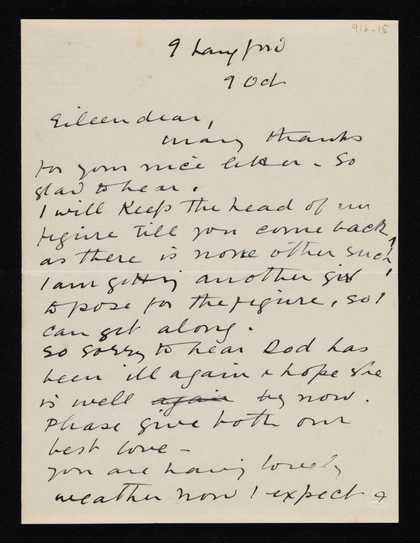 916-15
9 Langford
9 Oct
Eileen dear,
Many thanks
for your nice letter - so
glad to hear.
I will keep the head of my
figure till you come back,
as there is none other such!
I am getting another girl
to pose for the figure, so I
can get along.
So sorry to hear Dod has
been ill again & hope she
is well again by now.
Please give both our
best love -
You are having lovely
weather now I expect &